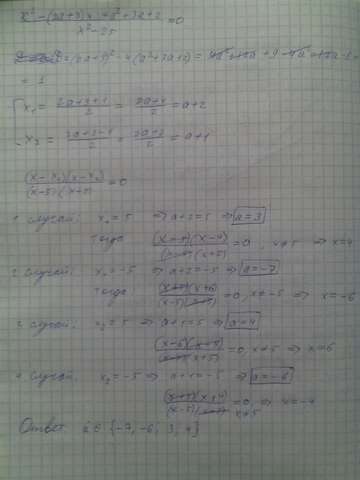 x² - (2a+3)x + a² + 3a + 2 / x² - 25 = 0
= (2a+3)² - 4(a²+3a+2) = 4a² + 12a + 9 - 4a² - 12a - 8 =
= 1
x₁ = 2a+3+1 / 2 = 2a+4 / 2 = a+2
x₂ = 2a+3-1 / 2 = 2a+2 / 2 = a+1
(x-x₁)(x-x₂) / (x-5)(x+5) = 0
1 случай: x₁ = 5 ⇒ a+2=5 ⇒ a=3
тогда (x-5)(x-4) / (x-5)(x+5) = 0, x≠5 ⇒ x=4
2 случай: x₁ = -5 ⇒ a+2=-5 ⇒ a=-7
тогда (x+5)(x+6) / (x-5)(x+5) = 0, x≠-5 ⇒ x=-6
3 случай: x₂ = 5 ⇒ a+1=5 ⇒ a=4
(x-6)(x-5) / (x-5)(x+5) = 0, x≠5 ⇒ x=6
4 случай: x₂ = -5 ⇒ a+1=-5 ⇒ a=-6
(x+5)(x+4) / (x-5)(x+5) = 0, ⇒ x=-4
x≠5
Ответ: a ∈ {-7; -6; 3; 4}